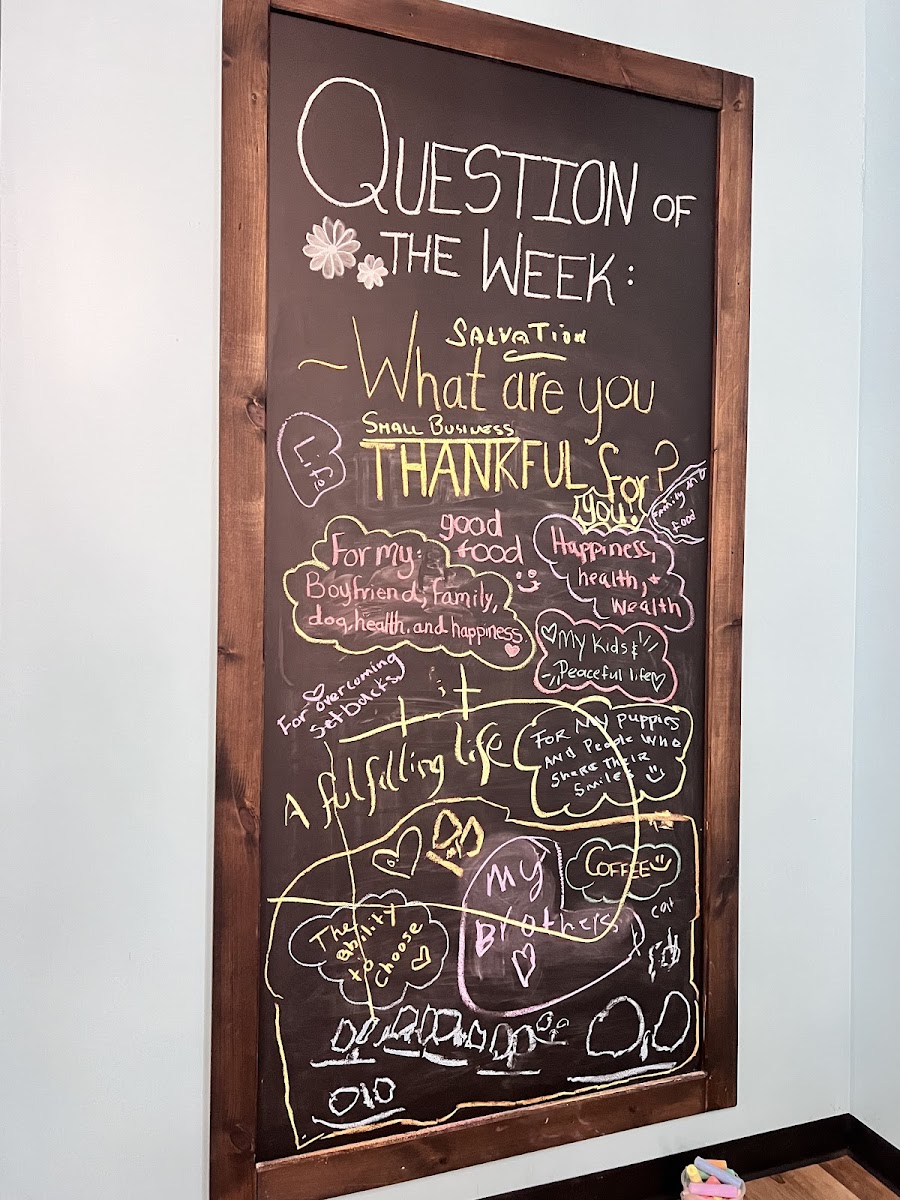 QUESTION OF
THE WEEK:
SALVATION
~What are you
SMALL BUSINESS
THANKFUL for?
Life
you!
Family and
food
good
food
For my:
Boyfriend, family,
dog, health, and happiness
Happiness,
health, +
Wealth
My Kids &
Peaceful life
For overcoming
setbacks
A fulfilling life
FOR MY PUPPIES
AND PEOPLE WHO
SHARE THEIR
SMILES
My
Brothers
COFFEE
cat
The
ability
to
choose